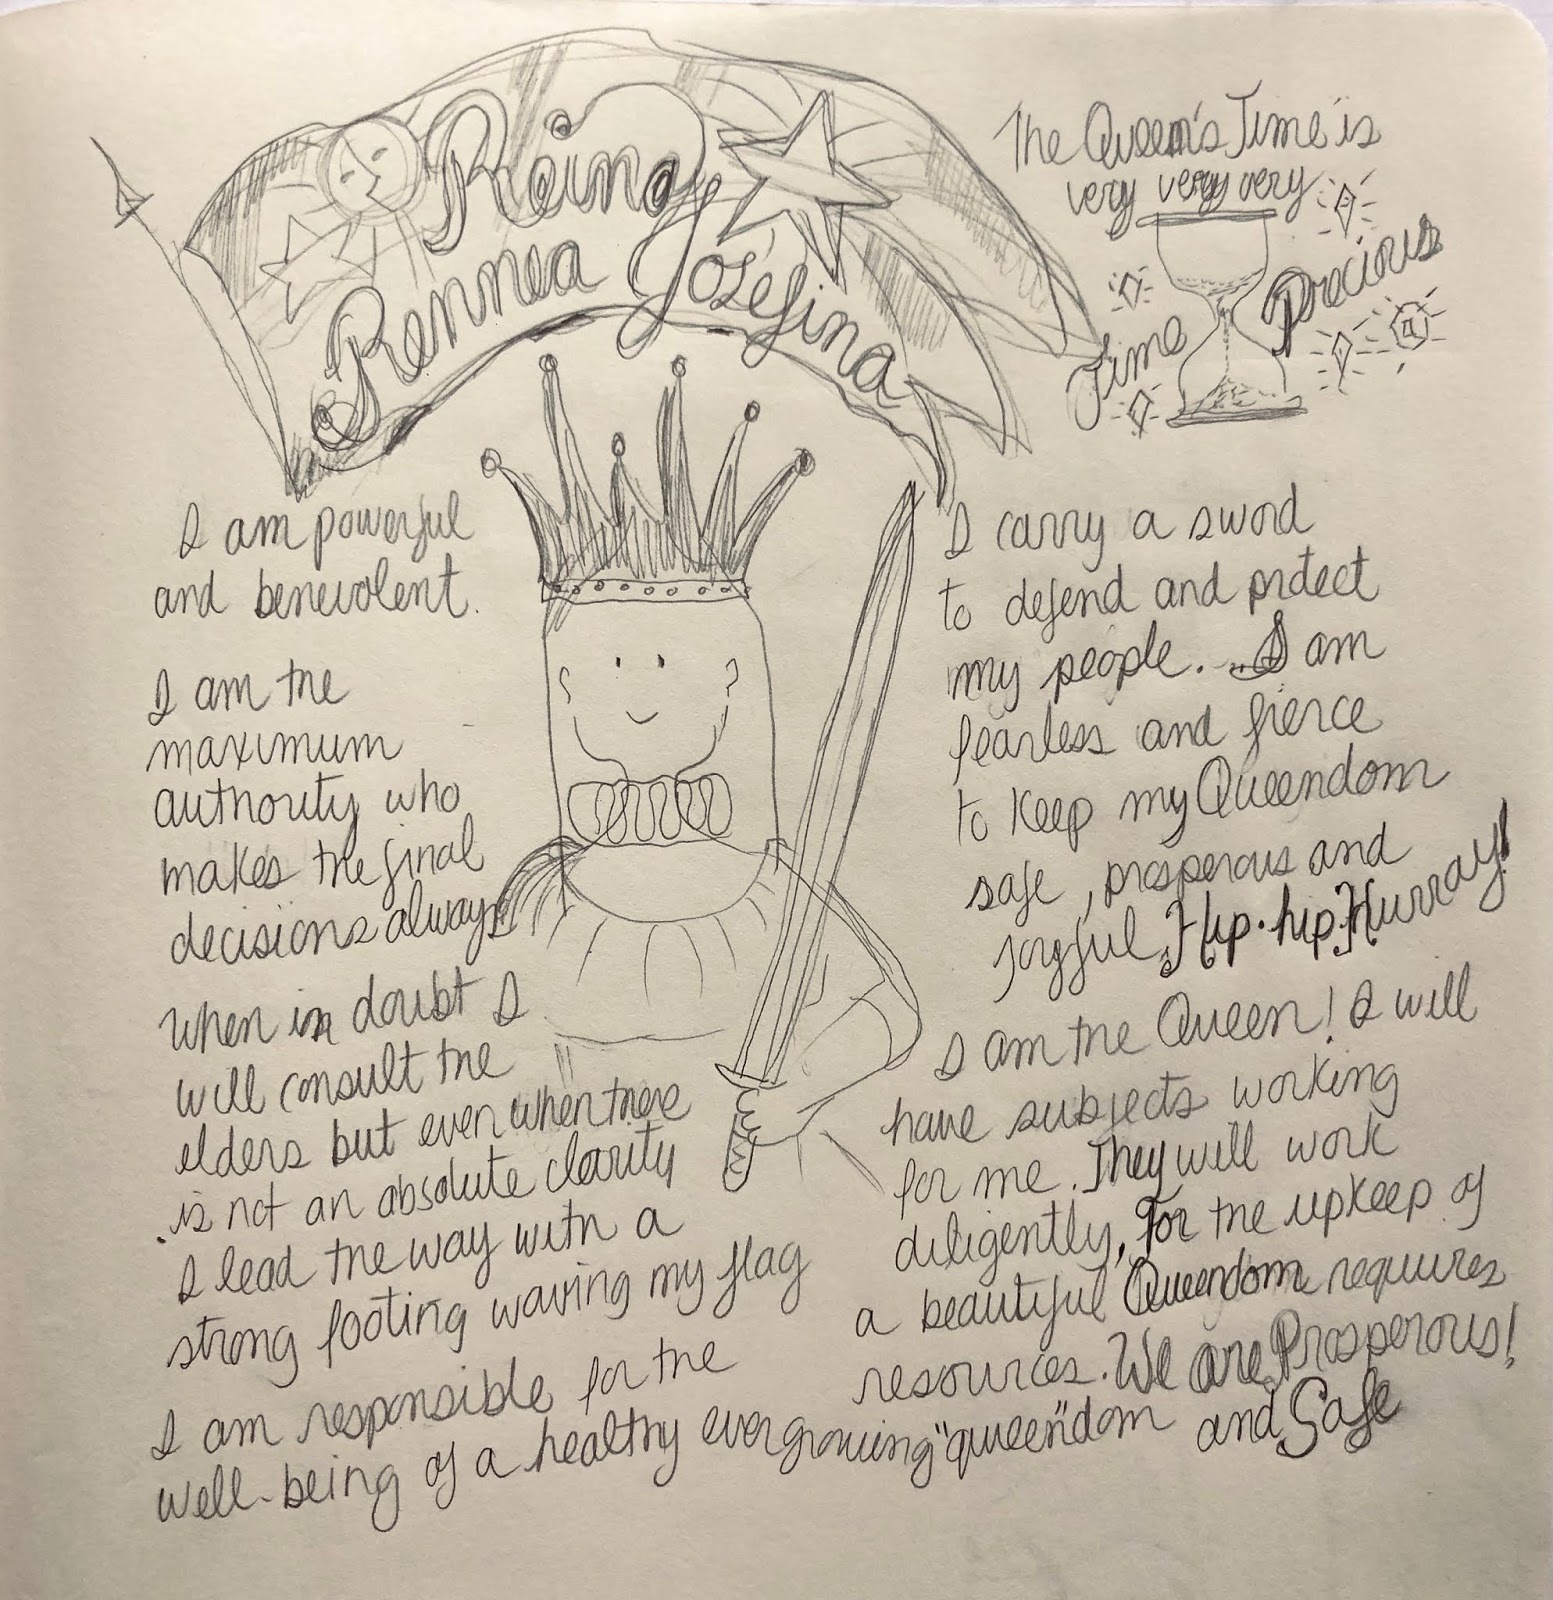 Reina
Rennea Josefina
The Queen's Time is
very very very
Precious
Time
I am powerful
and benevolent.
I am the
maximum
authority who
makes the final
decisions always
When in doubt I
will consult the
elders but even when there
is not an absolute clarity
I lead the way with a
strong footing waving my flag
I am responsible for the
well-being of a healthy ever growing "queen"dom and Safe
I carry a sword
to defend and protect
my people. I am
fearless and fierce
to keep my Queendom
safe, prosperous and
joyful Hip.hip.Hurray!
I am the Queen! I will
have subjects working
for me. They will work
diligently, For the upkeep of
a beautiful Queendom requires
resources. We are Prosperous!